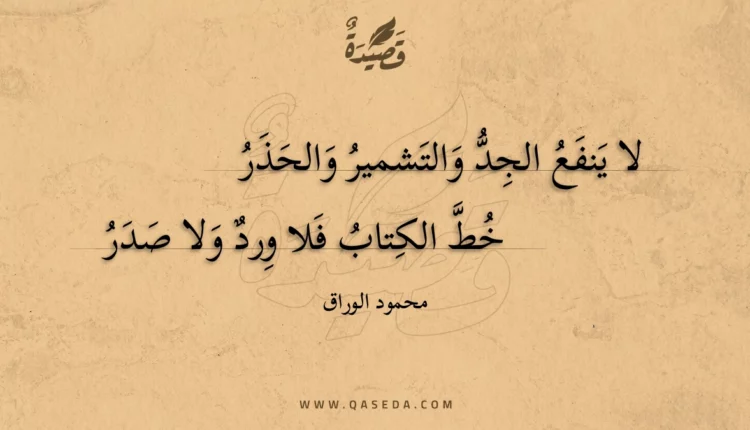 قَصِيدَةٌ
لا يَنفَعُ الجِدُّ وَالتَشميرُ وَالحَذَرُ
خُطَّ الكِتابُ فَلا وِردٌ وَلا صَدَرُ
محمود الوراق
WWW.QASEDA.COM